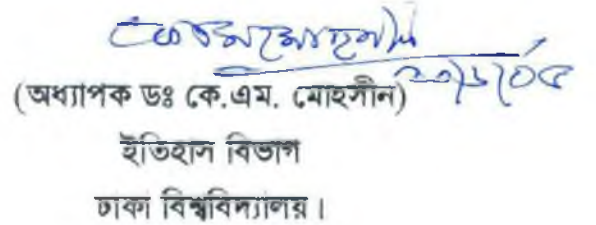 (অধ্যাপক ডঃ কে.এম. মোহসীন)
ইতিহাস বিভাগ
ঢাকা বিশ্ববিদ্যালয়।